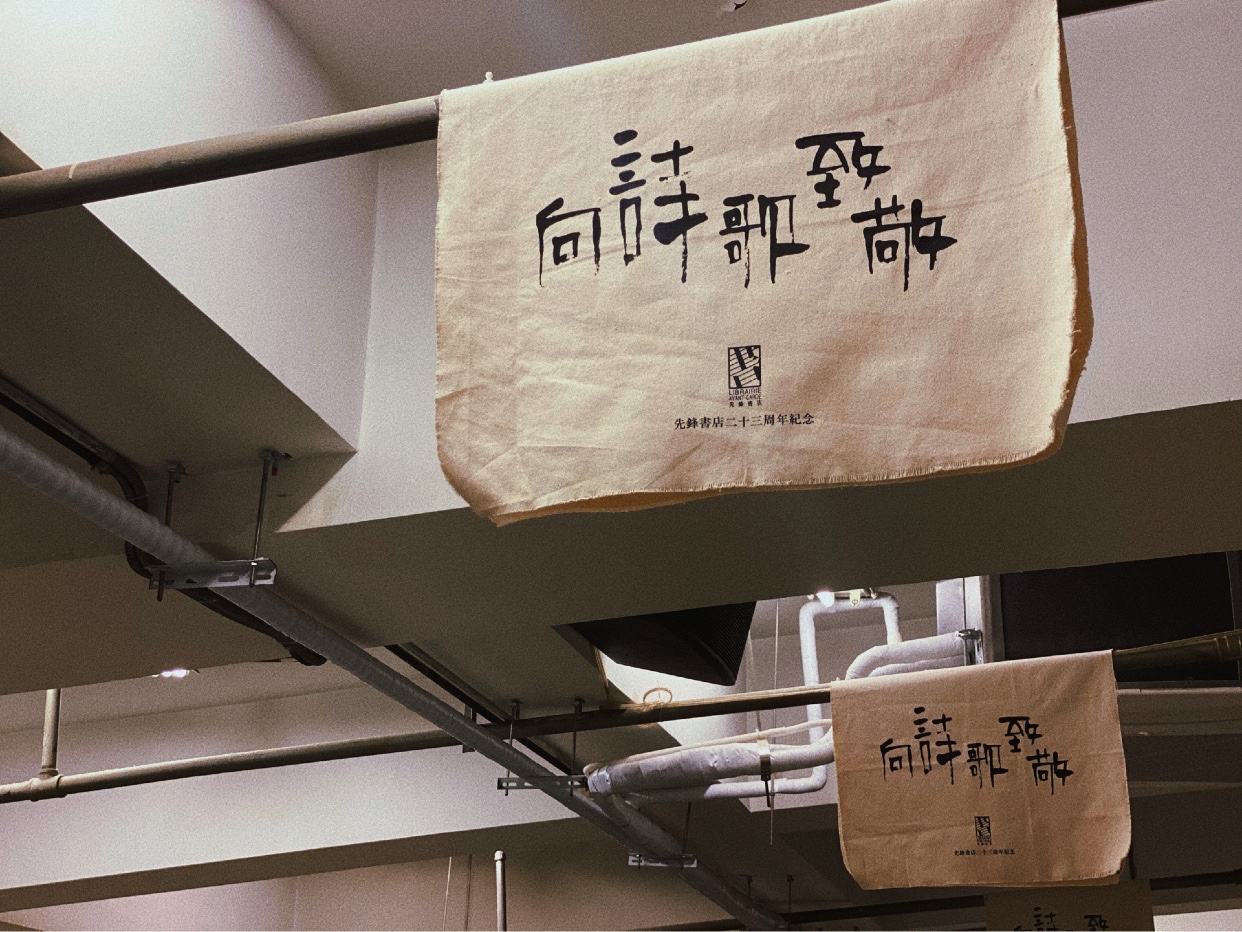 向詩歌致敬
LIBRAIRIE
AVANT-GARDE
先鋒書店
先鋒書店二十三周年紀念
向詩歌致敬
先鋒書店二十三周年紀念
詩 致